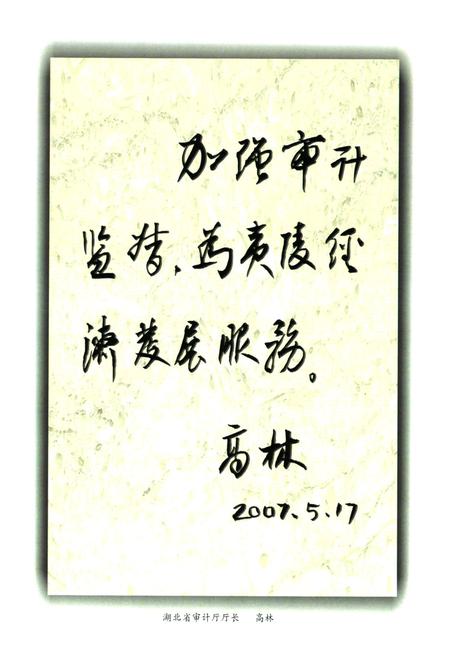 加强审计
监督，为夷陵经
济发展服务。
高林
2007.5.17
湖北省审计厅厅长 高林